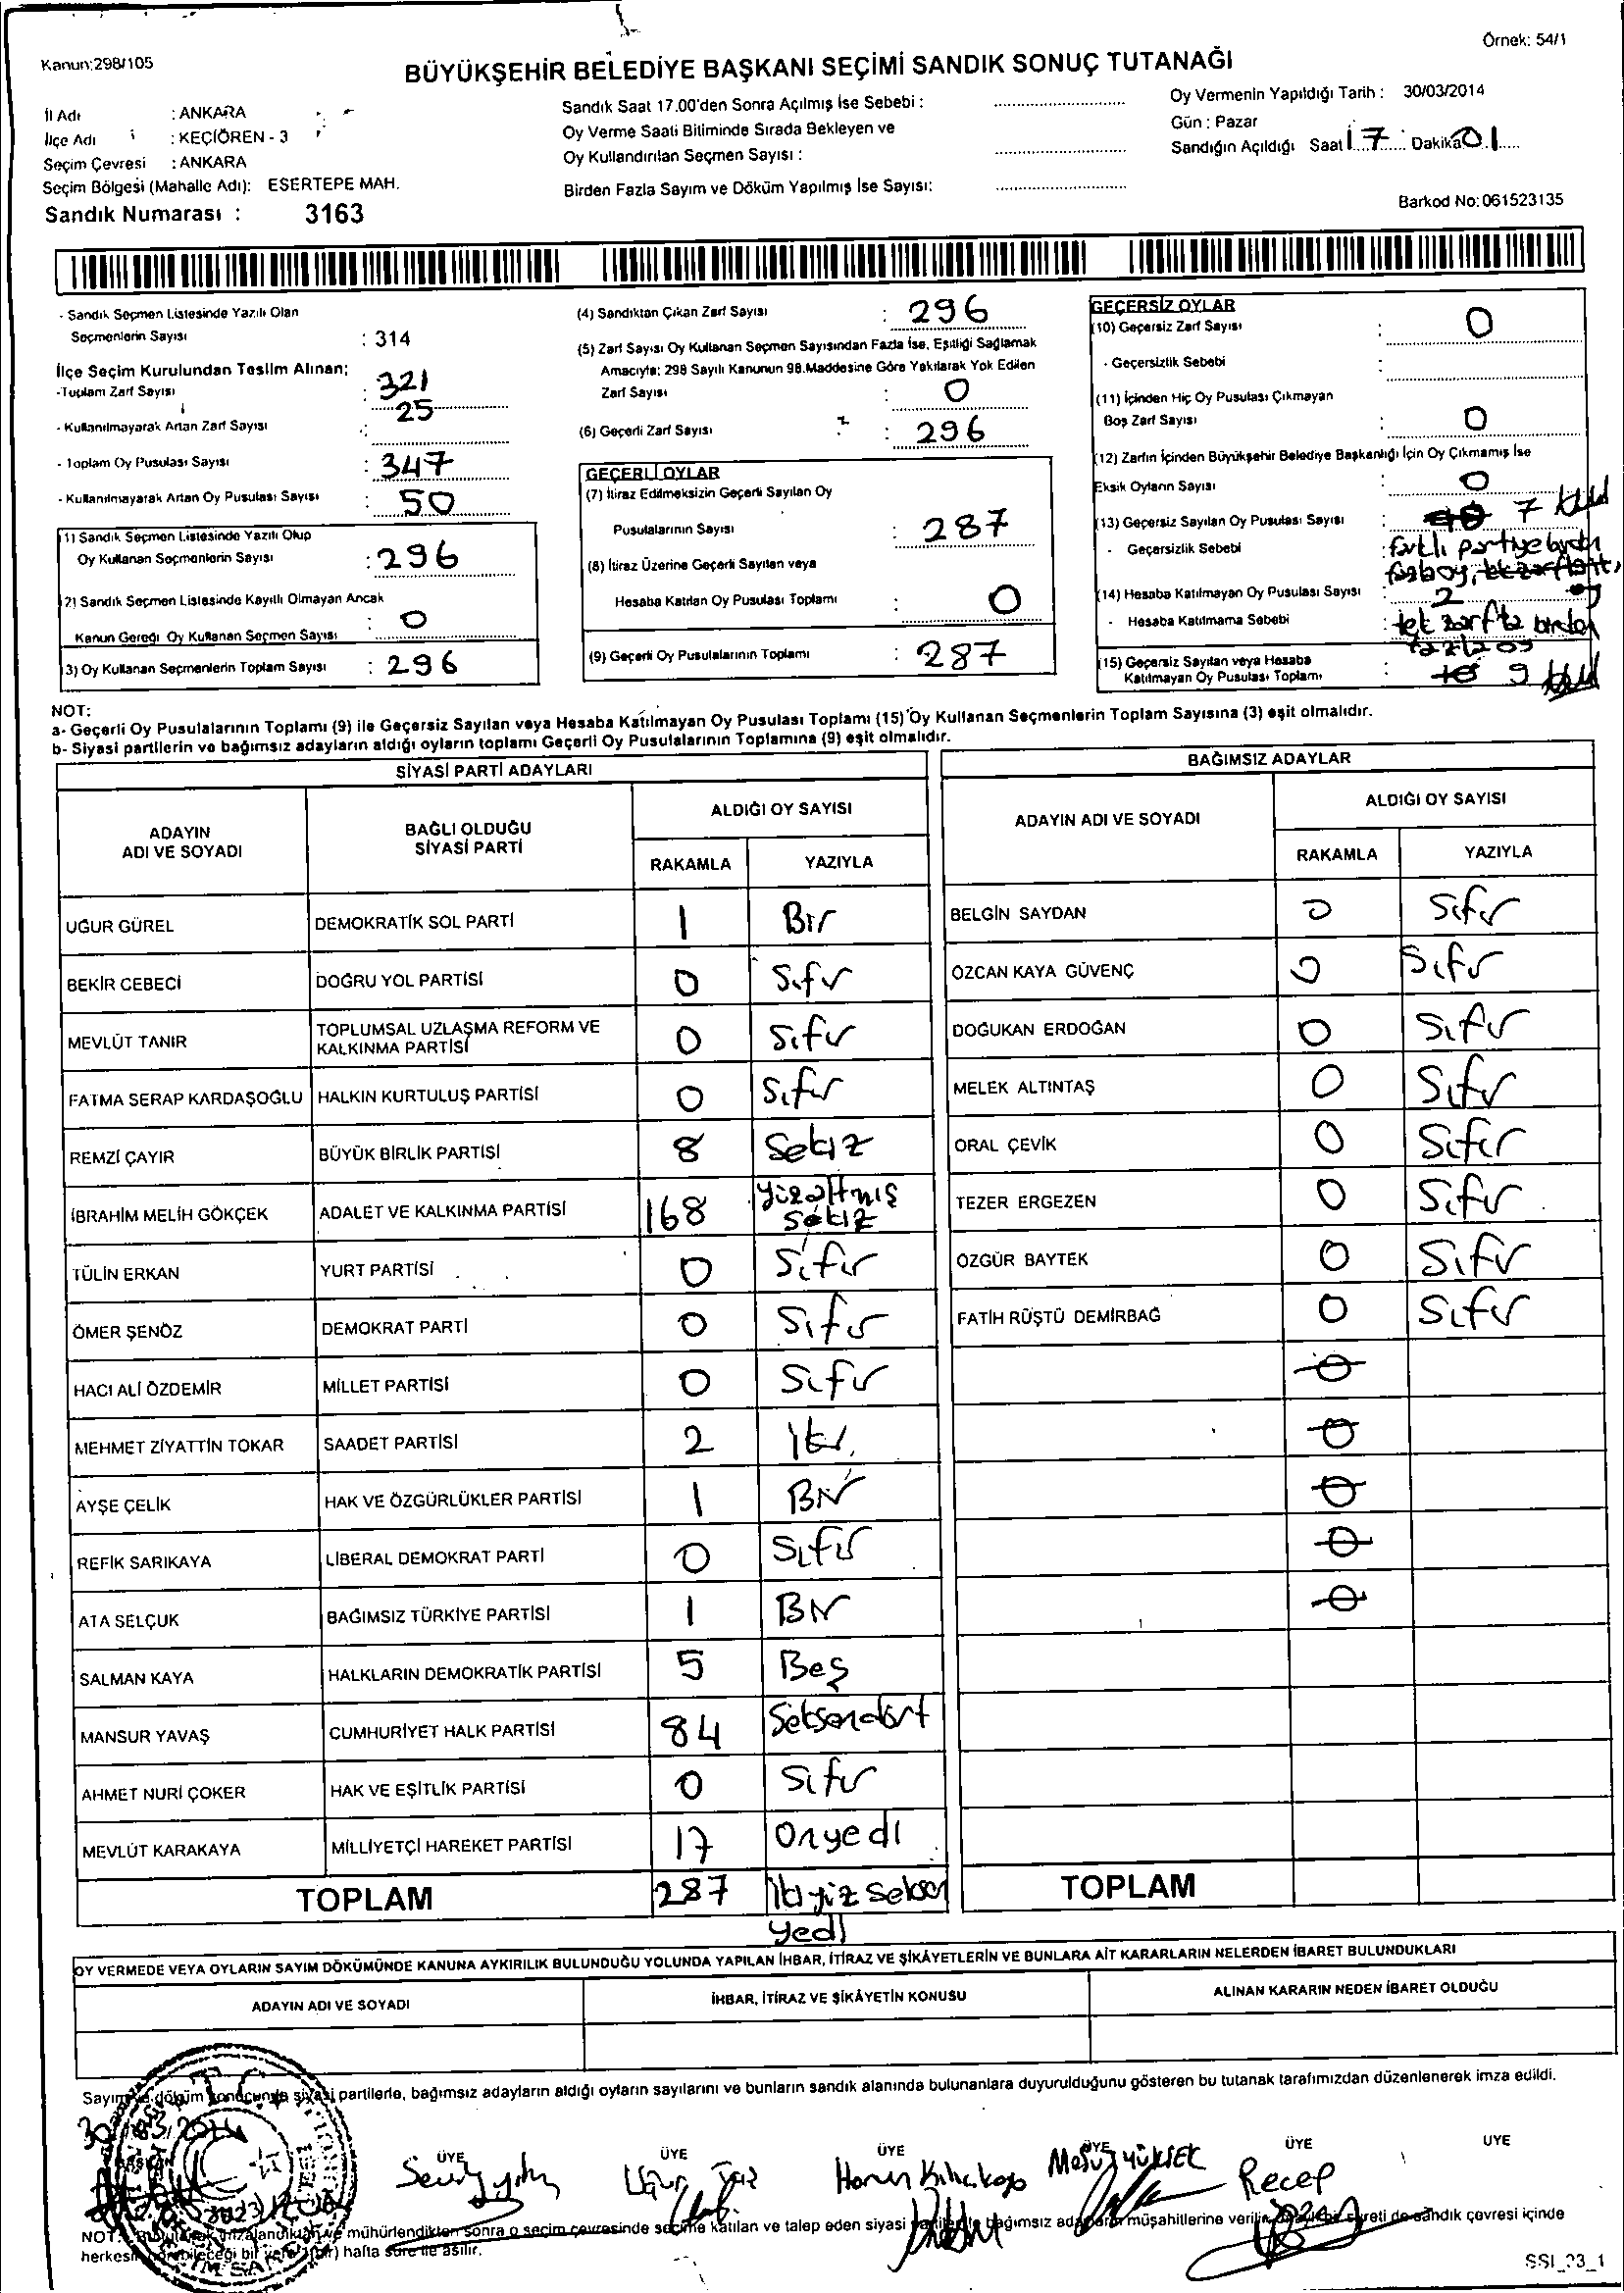 Örnek: 54/1
Kanun:298/105
BÜYÜKŞEHİR BELEDİYE BAŞKANI SEÇİMİ SANDIK SONUÇ TUTANAĞI
İl Adı : ANKARA
İlçe Adı : KEÇİÖREN - 3
Seçim Çevresi : ANKARA
Seçim Bölgesi (Mahalle Adı): ESERTEPE MAH.
Sandık Numarası : 3163
Sandık Saat 17.00'den Sonra Açılmış İse Sebebi :
Oy Verme Saati Bitiminde Sırada Bekleyen ve
Oy Kullandırılan Seçmen Sayısı :
Birden Fazla Sayım ve Döküm Yapılmış İse Sayısı:
Oy Vermenin Yapıldığı Tarih : 30/03/2014
Gün : Pazar
Sandığın Açıldığı Saat 17 : Dakika 01
Barkod No: 061523135
- Sandık Seçmen Listesinde Yazılı Olan
Seçmenlerin Sayısı : 314
İlçe Seçim Kurulundan Teslim Alınan;
-Toplam Zarf Sayısı : 321
- Kullanılmayarak Artan Zarf Sayısı : 25
- Toplam Oy Pusulası Sayısı : 347
- Kullanılmayarak Artan Oy Pusulası Sayısı : 50
1) Sandık Seçmen Listesinde Yazılı Olup
Oy Kullanan Seçmenlerin Sayısı : 296
2) Sandık Seçmen Listesinde Kayıtlı Olmayan Ancak
Kanun Gereği Oy Kullanan Seçmen Sayısı : 0
3) Oy Kullanan Seçmenlerin Toplam Sayısı : 296
(4) Sandıktan Çıkan Zarf Sayısı : 296
(5) Zarf Sayısı Oy Kullanan Seçmen Sayısından Fazla İse, Eşitliği Sağlamak
Amacıyla; 298 Sayılı Kanunun 98.Maddesine Göre Yakılarak Yok Edilen
Zarf Sayısı : 0
(6) Geçerli Zarf Sayısı : 296
GEÇERLİ OYLAR
(7) İtiraz Edilmeksizin Geçerli Sayılan Oy
Pusulalarının Sayısı : 287
(8) İtiraz Üzerine Geçerli Sayılan veya
Hesaba Katılan Oy Pusulası Toplamı : 0
(9) Geçerli Oy Pusulalarının Toplamı : 287
GEÇERSİZ OYLAR
(10) Geçersiz Zarf Sayısı : 0
- Geçersizlik Sebebi :
(11) İçinden Hiç Oy Pusulası Çıkmayan
Boş Zarf Sayısı : 0
(12) Zarfın İçinden Büyükşehir Belediye Başkanlığı İçin Oy Çıkmamış İse
Eksik Oyların Sayısı : 0
(13) Geçersiz Sayılan Oy Pusulası Sayısı : 7
- Geçersizlik Sebebi :
(14) Hesaba Katılmayan Oy Pusulası Sayısı : 2
- Hesaba Katılmama Sebebi : tek zarfta birden
(15) Geçersiz Sayılan veya Hesaba
Katılmayan Oy Pusulası Toplamı : 9
NOT:
a- Geçerli Oy Pusulalarının Toplamı (9) ile Geçersiz Sayılan veya Hesaba Katılmayan Oy Pusulası Toplamı (15) Oy Kullanan Seçmenlerin Toplam Sayısına (3) eşit olmalıdır.
b- Siyasi partilerin ve bağımsız adayların aldığı oyların toplamı Geçerli Oy Pusulalarının Toplamına (9) eşit olmalıdır.
SİYASİ PARTİ ADAYLARI
ADAYIN ADI VE SOYADI BAĞLI OLDUĞU SİYASİ PARTİ ALDIĞI OY SAYISI
RAKAMLA YAZIYLA
UĞUR GÜREL DEMOKRATİK SOL PARTİ 1 Bir
BEKİR CEBECİ DOĞRU YOL PARTİSİ 0 Sıfır
MEVLÜT TANIR TOPLUMSAL UZLAŞMA REFORM VE KALKINMA PARTİSİ 0 Sıfır
FATMA SERAP KARDAŞOĞLU HALKIN KURTULUŞ PARTİSİ 0 Sıfır
REMZİ ÇAYIR BÜYÜK BİRLİK PARTİSİ 8 Sekiz
İBRAHİM MELİH GÖKÇEK ADALET VE KALKINMA PARTİSİ 168 yüzaltmış sekiz
TÜLİN ERKAN YURT PARTİSİ 0 Sıfır
ÖMER ŞENÖZ DEMOKRAT PARTİ 0 Sıfır
HACI ALİ ÖZDEMİR MİLLET PARTİSİ 0 Sıfır
MEHMET ZİYATTİN TOKAR SAADET PARTİSİ 2 İki
AYŞE ÇELİK HAK VE ÖZGÜRLÜKLER PARTİSİ 1 Bir
REFİK SARIKAYA LİBERAL DEMOKRAT PARTİ 0 Sıfır
ATA SELÇUK BAĞIMSIZ TÜRKİYE PARTİSİ 1 Bir
SALMAN KAYA HALKLARIN DEMOKRATİK PARTİSİ 5 Beş
MANSUR YAVAŞ CUMHURİYET HALK PARTİSİ 84 Seksendört
AHMET NURİ ÇOKER HAK VE EŞİTLİK PARTİSİ 0 Sıfır
MEVLÜT KARAKAYA MİLLİYETÇİ HAREKET PARTİSİ 17 Onyedi
TOPLAM 287 İkiyüz seksen yedi
BAĞIMSIZ ADAYLAR
ADAYIN ADI VE SOYADI ALDIĞI OY SAYISI
RAKAMLA YAZIYLA
BELGİN SAYDAN 0 Sıfır
ÖZCAN KAYA GÜVENÇ 0 Sıfır
DOĞUKAN ERDOĞAN 0 Sıfır
MELEK ALTINTAŞ 0 Sıfır
ORAL ÇEVİK 0 Sıfır
TEZER ERGEZEN 0 Sıfır
ÖZGÜR BAYTEK 0 Sıfır
FATİH RÜŞTÜ DEMİRBAĞ 0 Sıfır
0
0
0
0
0
TOPLAM
OY VERMEDE VEYA OYLARIN SAYIM DÖKÜMÜNDE KANUNA AYKIRILIK BULUNDUĞU YOLUNDA YAPILAN İHBAR, İTİRAZ VE ŞİKÂYETLERİN VE BUNLARA AİT KARARLARIN NELERDEN İBARET BULUNDUKLARI
ADAYIN ADI VE SOYADI İHBAR, İTİRAZ VE ŞİKÂYETİN KONUSU ALINAN KARARIN NEDEN İBARET OLDUĞU
Sayım ve döküm sonucunda siyasi partilerle, bağımsız adayların aldığı oyların sayılarını ve bunların sandık alanında bulunanlara duyurulduğunu gösteren bu tutanak tarafımızdan düzenlenerek imza edildi.
30/03/2014
BAŞKAN ÜYE ÜYE ÜYE ÜYE ÜYE ÜYE
Harun Kılıçkaya Mesut YÜKSEL Recep
NOT: mühürlendikten sonra o seçim çevresinde seçime katılan ve talep eden siyasi bağımsız müşahitlerine sandık çevresi içinde
herkesin görebileceği bir yere (bir) hafta süre ile asılır.
SSI_23_1